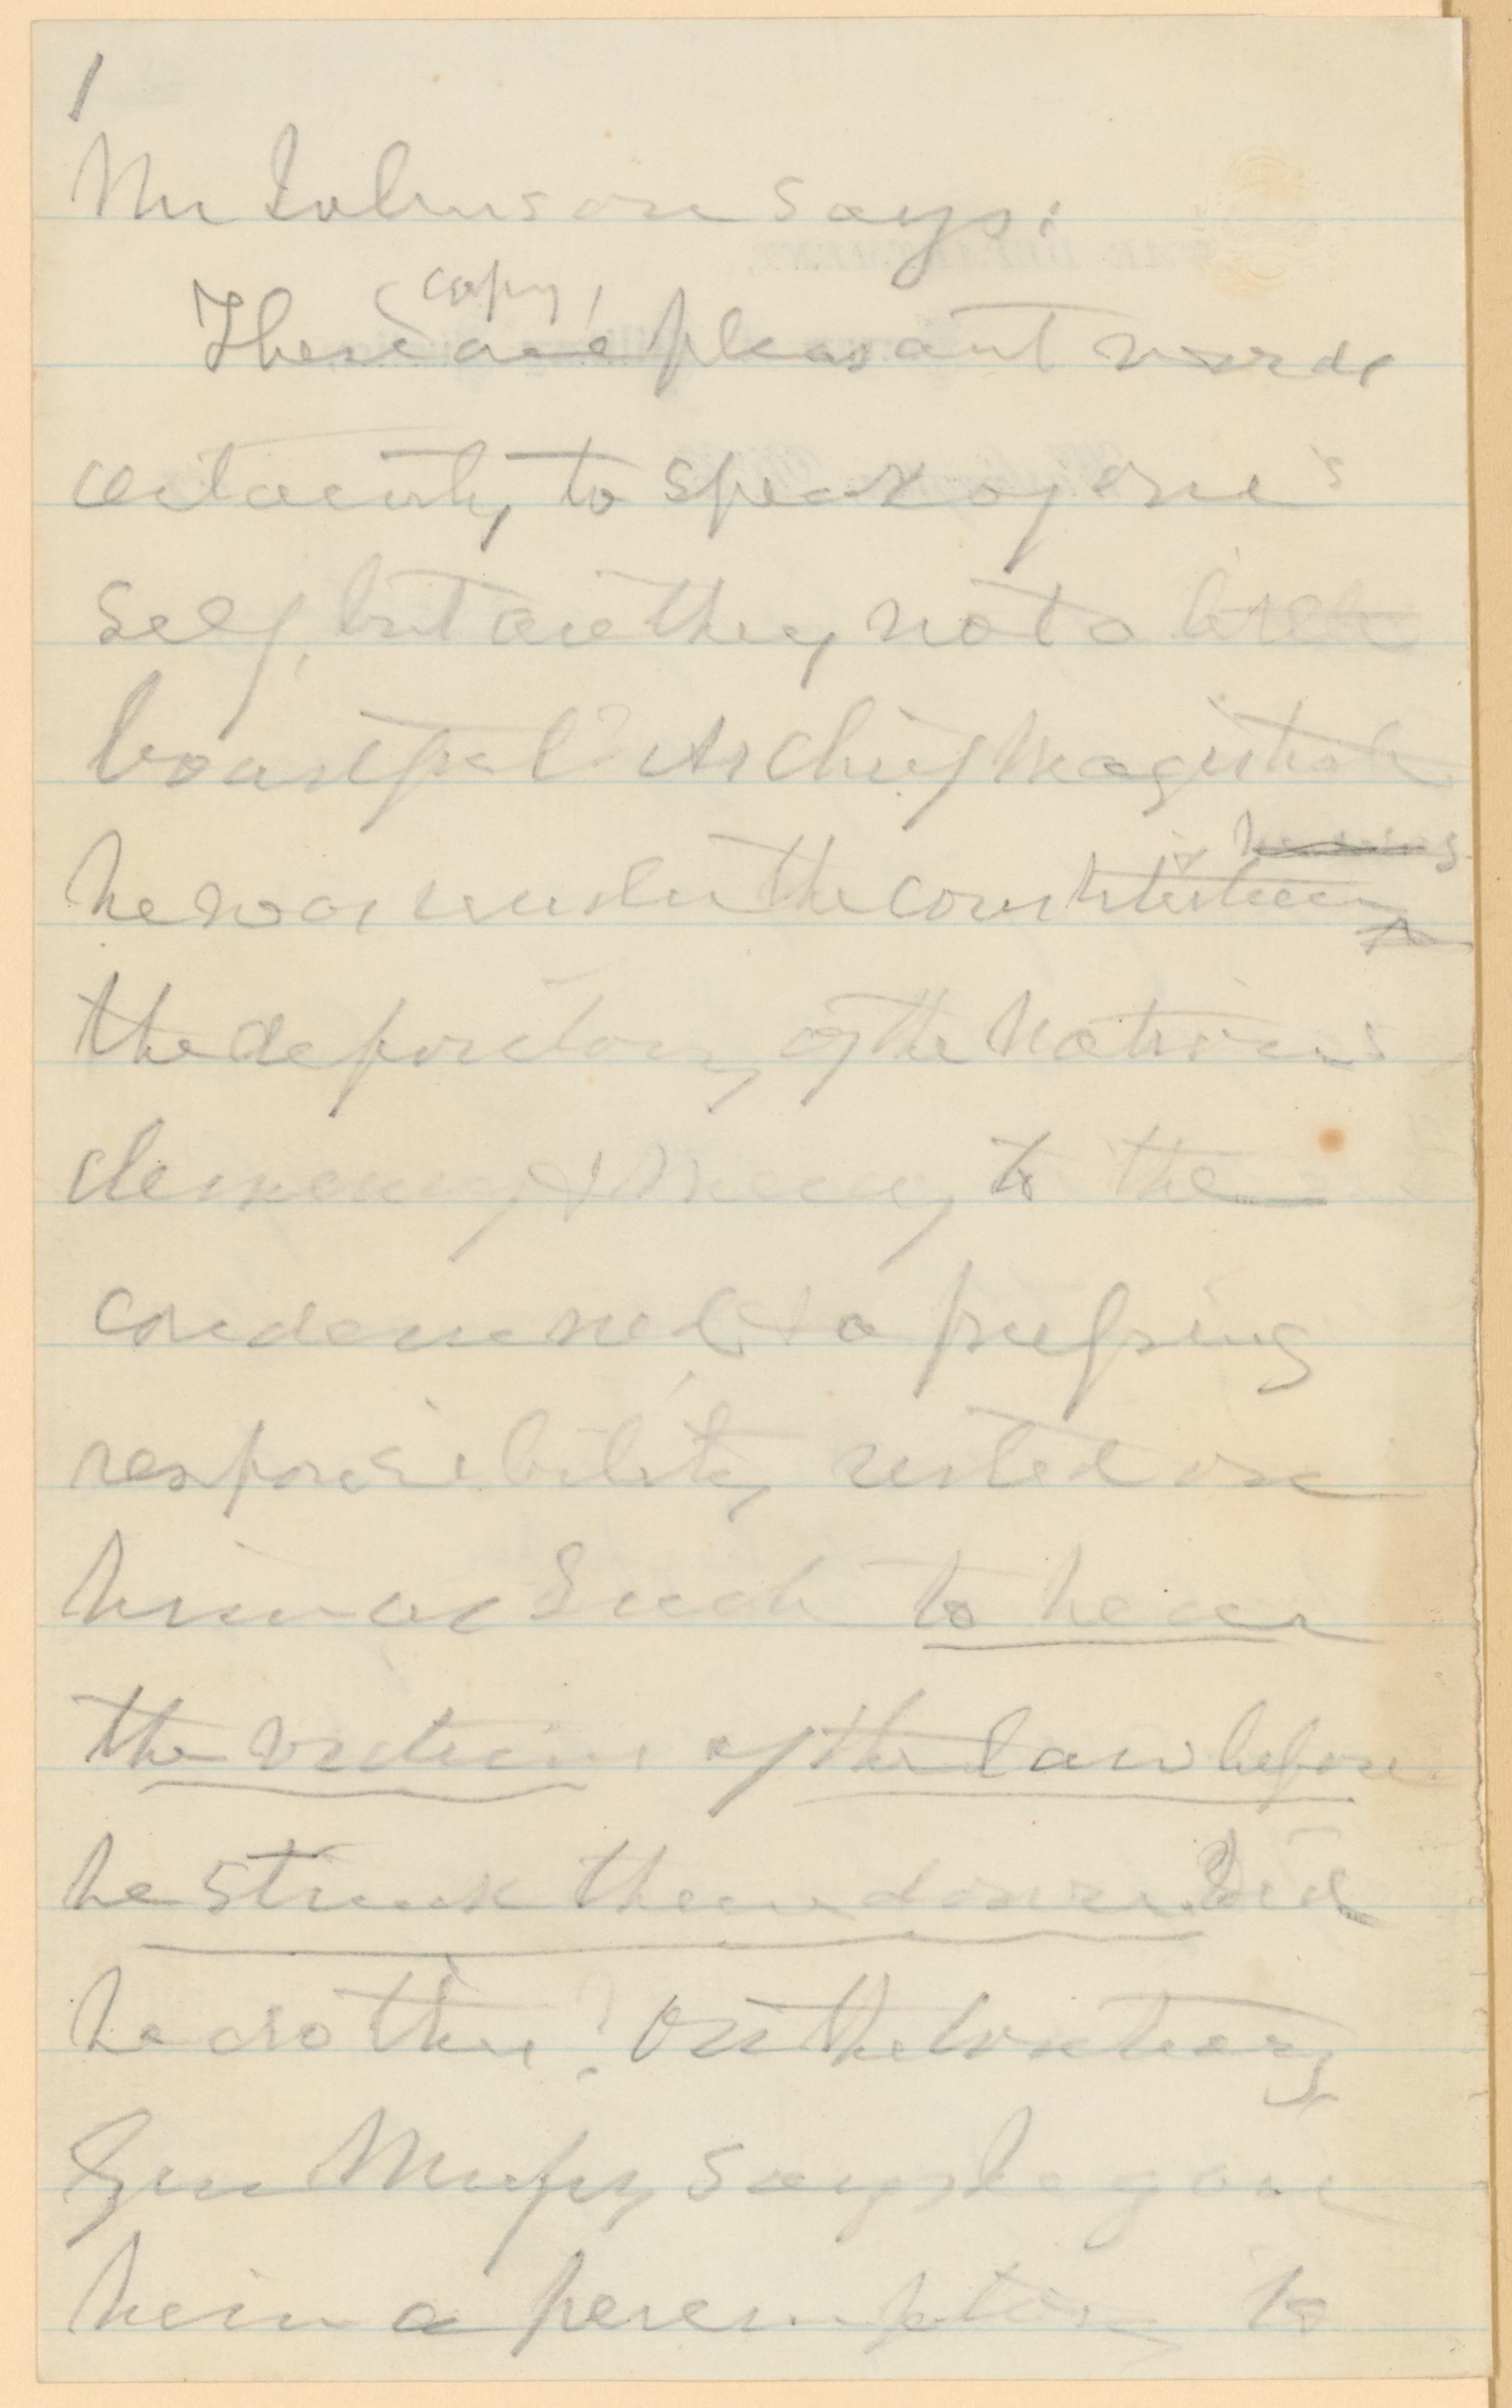 1
Mr Johnson says:
(copy)
These are pleasant words
certainly to speak of one's
self, but are they not a little
boastful? As Chief Magistrate
he was under the constitution
the depository of the Nations
clemency & mercy to the
condemned, & a pressing
responsibility rested on
him as such to hear
the victims of the law before
he struck them down. Did
he do this? On the contrary
Gen Mussey says he gave
him a peremptory to